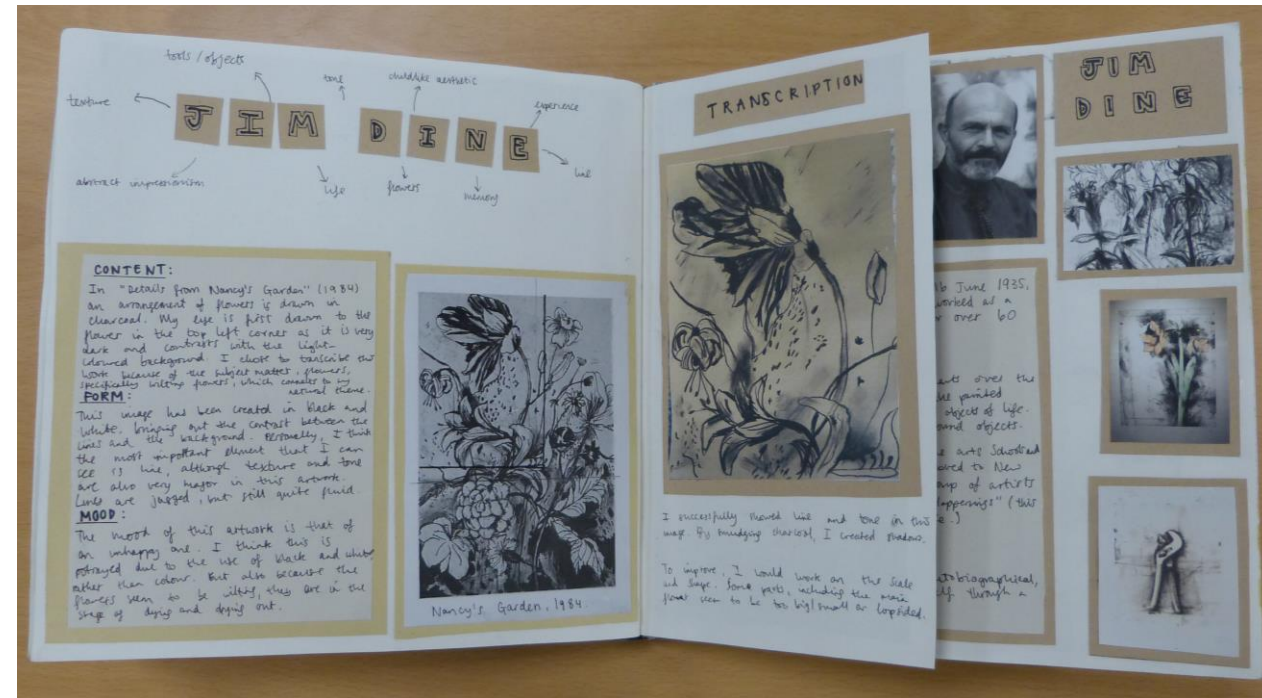 tools / objects
tone
childlike aesthetic
texture
experience
JIM DINE
abstract impressionism
life
flowers
memory
line
CONTENT:
In "Details from Nancy's Garden" (1984)
an arrangement of flowers is drawn in
charcoal. My eye is first drawn to the
flower in the top left corner as it is very
dark and contrasts with the light-
coloured background. I chose to transcribe this
work because of the subject matter, flowers,
specifically wilting flowers, which connects to my
natural theme.
FORM:
This image has been created in black and
white, bringing out the contrast between the
lines and the background. Personally, I think
the most important element that I can
see is line, although texture and tone
are also very major in this artwork.
Lines are jagged, but still quite fluid.
MOOD:
The mood of this artwork is that of
an unhappy one. I think this is
portrayed due to the use of black and white
rather than colour. But also because the
flowers seem to be wilting, they are in the
stage of dying and drying out.
Nancy's Garden, 1984.
TRANSCRIPTION
I successfully showed line and tone in this
image. By smudging charcoal, I created shadows.
To improve, I would work on the scale
and shape. Some parts, including the main
flower seem to be too big/small or lopsided.
JIM
DINE
16 June 1935,
worked as a
over 60
arts over the
painted
objects of life.
found objects.
arts School and
moved to New
group of artists
Happenings" (this
autobiographical,
self through a